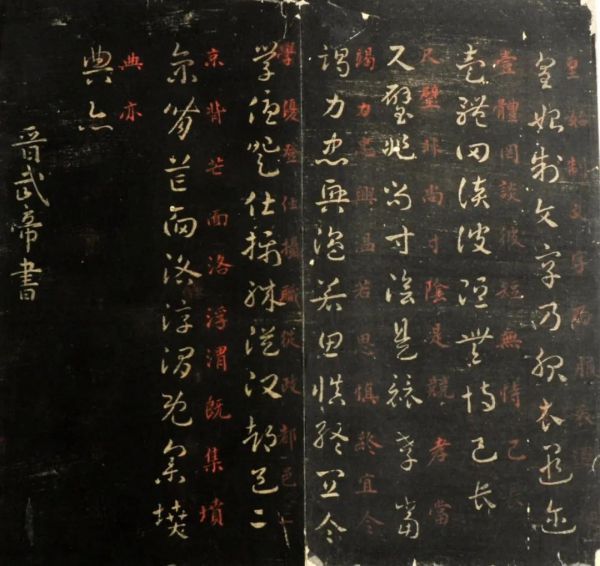 皇始制文字乃服衣
皇始制文字乃服衣遐邇
壹體罔談彼短無恃己長
壹體罔談彼短無恃己長
尺璧非尚寸陰是競孝當
尺璧非尚寸陰是競孝當
竭力忠興溫若思慎終宜令
竭力忠興溫若思慎終宜令
學優登仕攝職從政都邑二
學優登仕攝職從政都邑二
京背芒面洛浮渭既集墳
京背芒面洛浮渭既集墳
典亦
典亦
晉武帝書